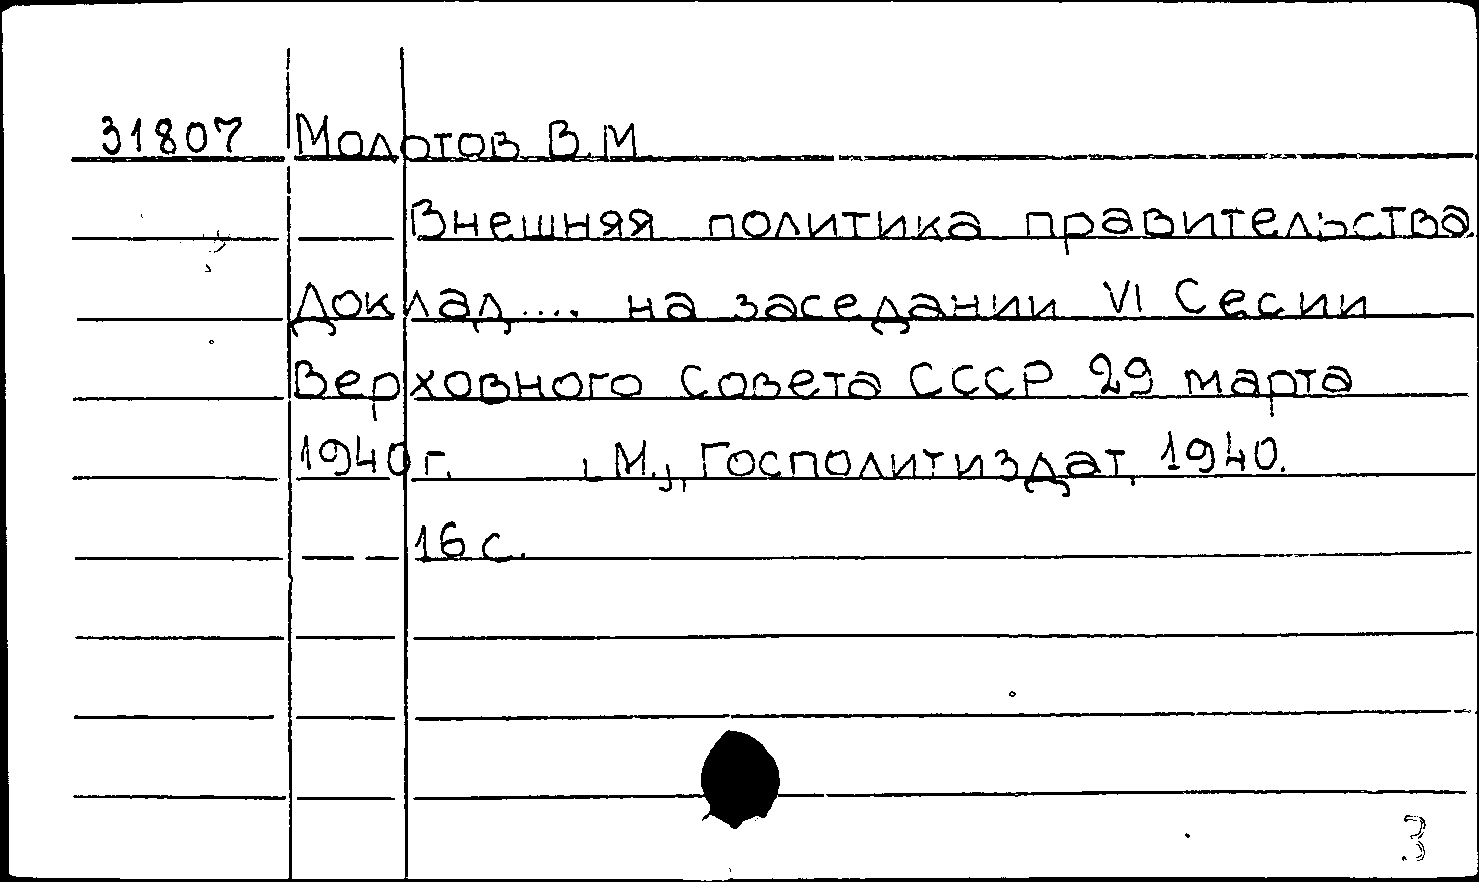 31807 Молотов В.М
Внешняя политика правительства.
Доклад.... на заседании VI Сесии
Верховного Совета СССР 29 марта
1940г. М., Госполитиздат, 1940.
16 с.
3